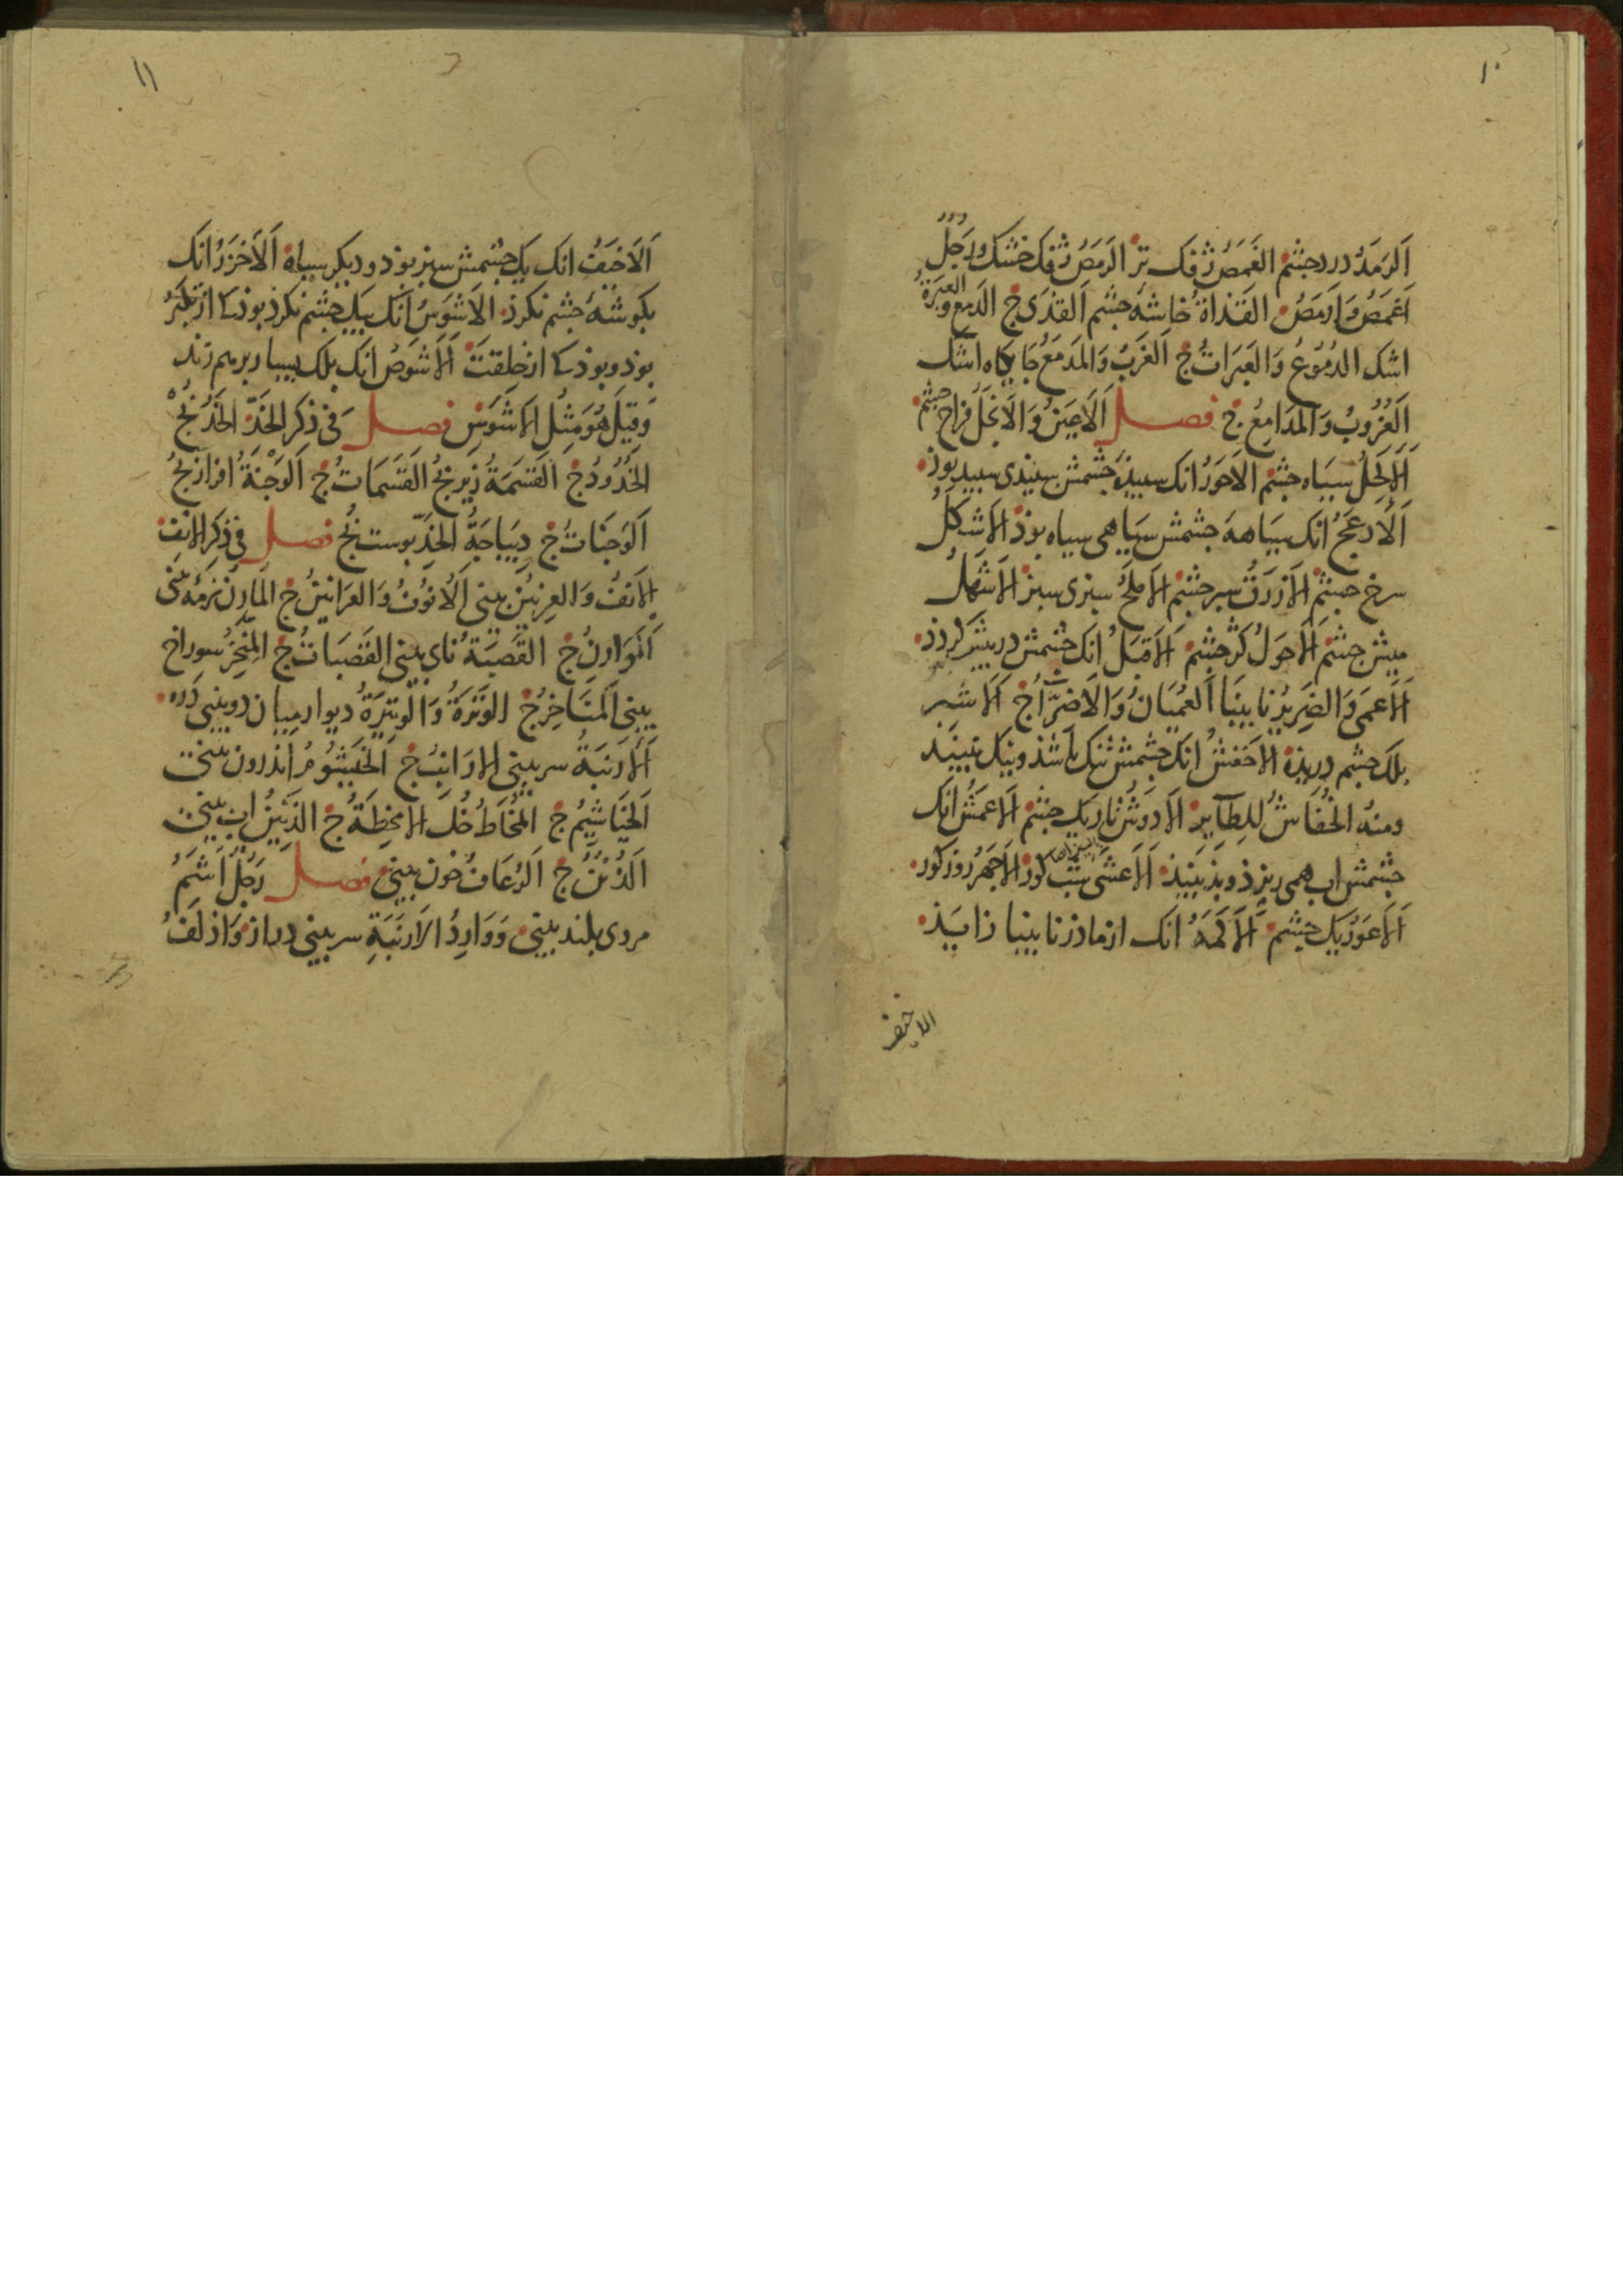 ١٠
اَلرَمَدُ درد جشم الغَمَصُ ژفک تر الرَمَصُ ژفک خشک وَرَجُلٌ
اَغمَصُ وَاَرمَصُ القَذاةُ خاشهٔ جشم اَلقَذَى ج الدَمع وَ العَبرَةُ
اشک الدُمُوعُ وَالعَبَرَاتُ ج اَلغَربُ وَالمَدمَعُ جایکاه اشک
اَلغُرُوبُ وَالمَدَامِعُ ج فصل اَلاَعيَنُ وَالاَنجَلُ فراخ جشم
اَلاَكحَلُ سیاه جشم الاَحوَرُ انک سبیذهٔ جشمش سبیذی سبید بوذ
اَلاَدعَجُ انک سیاههٔ جشمش سیاهی سیاه بوذ الاَشكَلُ
سرخ جشم الاَزرَقُ سبز جشم الاَملَحُ سبزی سبز الاَشهَلُ
میش جشم اَلاَحوَلُ کژ جشم اَلاَقبَلُ انک جشمش در پیش کردذ
اَلاَعمَى وَالضَرِيرُ نابینا اَلعُميَانُ وَالاَضِرَّاءُ ج اَلاَشتر
بلک جشم دریذه الاَخفَشُ انک جشمش تنک باشذ ونیک نبیند
ومنهُ الخُفّاشُ لِلطَائِرِ الاَدوَشُ تاریک جشم اَلاَعمَشُ انک
جشمش اب همی ریزذ و بذ بینذ اَلاَعشَى شب کور الاَجهَرُ روز کور
اَلاَعوَرُ یک جشم اَلاَكمَهُ انک از ماذر نابینا زایذ
الاخیف
١١
اَلاَخيَفُ انک یک جشمش سبز بوذ و دیکر سیاه اَلاَخزَرُ انک
بکوشهٔ جشم نکرذ الاَشوَسُ انک بیک جشم نکرذ بوذ کا از تکبّر
بوذ و بوذ کا از خلقت اَلاَشوَصُ انک بلک بسیار برهم زند
وَقِيلَ هُوَ مِثلُ الاَشوَسِ فصل فِی ذِكرِ الخَدِّ الخَدُّ رُخ
الخُدُودُ ج القَسَمَةُ زیر رخ القَسَمَاتُ ج اَلوَجنَةُ افراز رخ
اَلوَجَنَاتُ ج دِيبَاجَةُ الخَدِّ بوست رُخ فصل فی ذِكرِ الاَنفِ
الاَنفُ وَالعِرنِينُ بینی اَلاُنُوفُ وَالعَرَانِينُ ج المَارِنُ نرمهٔ بینی
اَلمَوَارِنُ ج القَصَبَةُ نای بینی القَصَبَاتُ ج المِنخِرُ سوراخ
بینی اَلمَنَاخِرُ ج الوَتَرَةُ وَالوَتِيرَةُ دیوار میان دو بینی دره
اَلاَرنَبَةُ سر بینی الارَانِبُ ج اَلخَيشُومُ اندرون بینی
اَلخَيَاشِيمُ ج المُخَاطُ خُل الامخِطَةُ ج الذَنِينُ اب بینی
اَلذُنُنُ ج اَلرُعَافُ خون بینی فصل رَجُلٌ اَشَمُّ
مردی بلند بینی وَوَارِدُ الاَرنَبَةِ سر بینی دراز وَاَذلَفُ